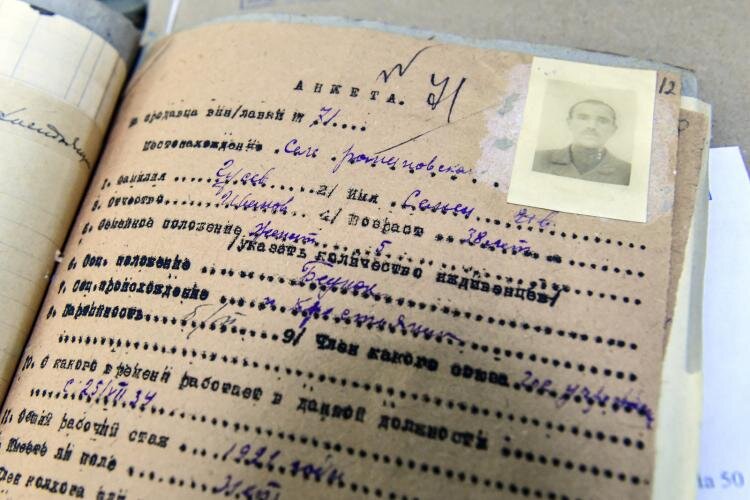 12
АНКЕТА. № 71
продавца вин/лавки № 71....
Местонахождение .Сел.
1. Фамилия ... Гусев ...... 2/ Имя .Семен
3. Отчество....... Иванов ..... 4/ Возраст .. 38 лет
5. Семейное положение Женат .. 5
/указать количество иждивенцев/
6. Соц. положение
7. Соц.происхождение .. из крестьян
8. Партийность..... б/п ....... 9/ Член какого союза Гос.
10. С какого времени работает в данной должности
с 25/VII 34
11. Общий рабочий стаж .. 1921 года
Имеете ли поле
Член колхоза или
ia 50